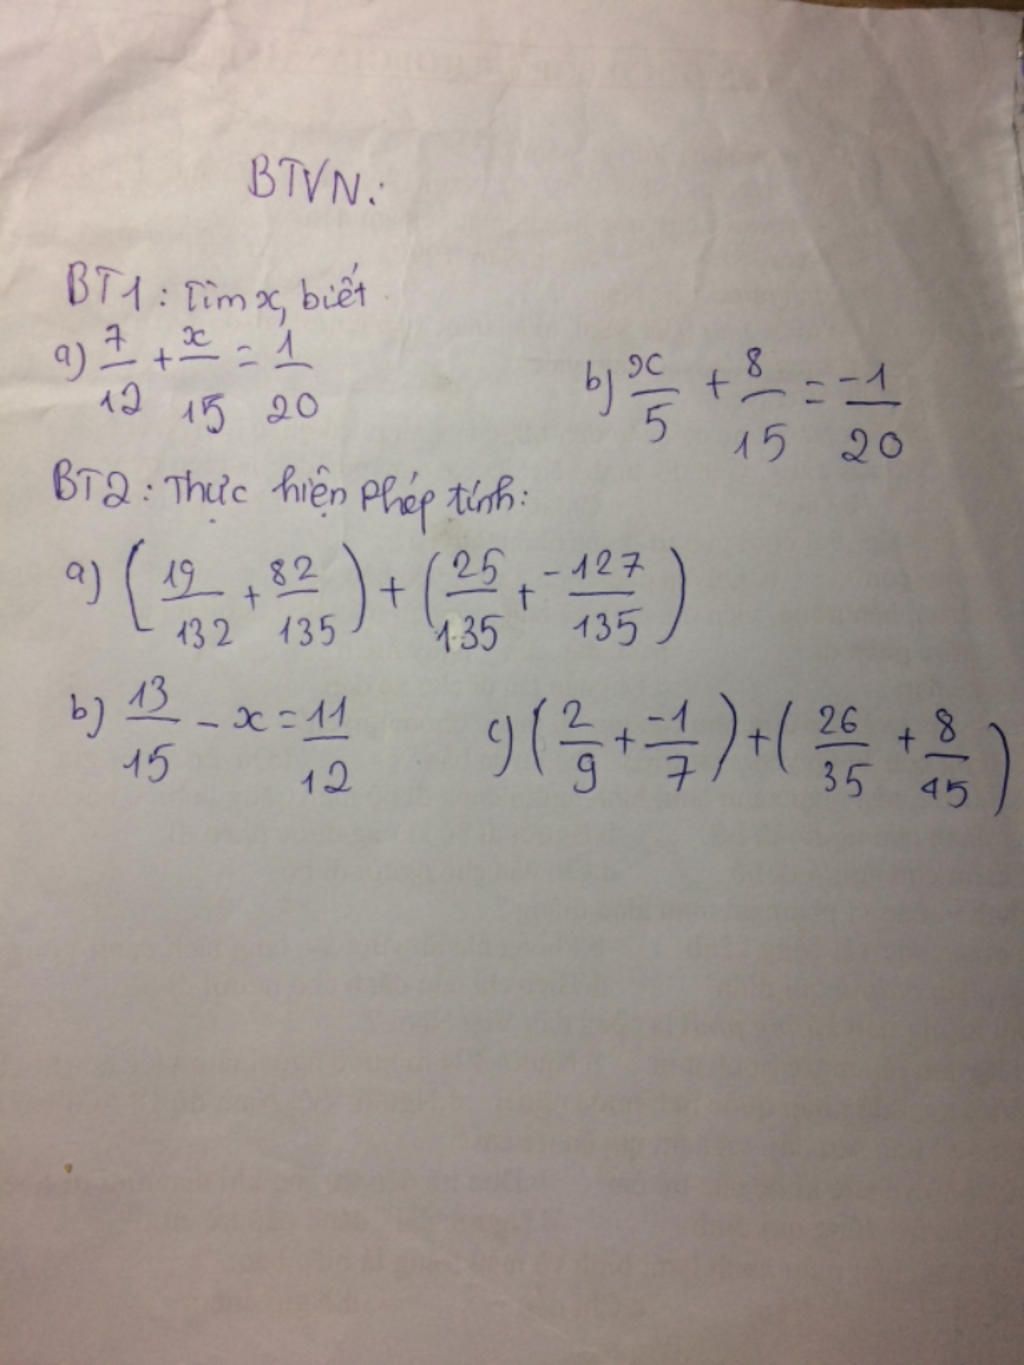 BTVN:
BT1: Tìm x, biết
a) 7/12 + x/15 = 1/20
b) x/5 + 8/15 = -1/20
BT2: Thực hiện phép tính:
a) (19/132 + 82/135) + (25/135 + -127/135)
b) 13/15 - x = 11/12
c) (2/9 + -1/7) + (26/35 + 8/45)